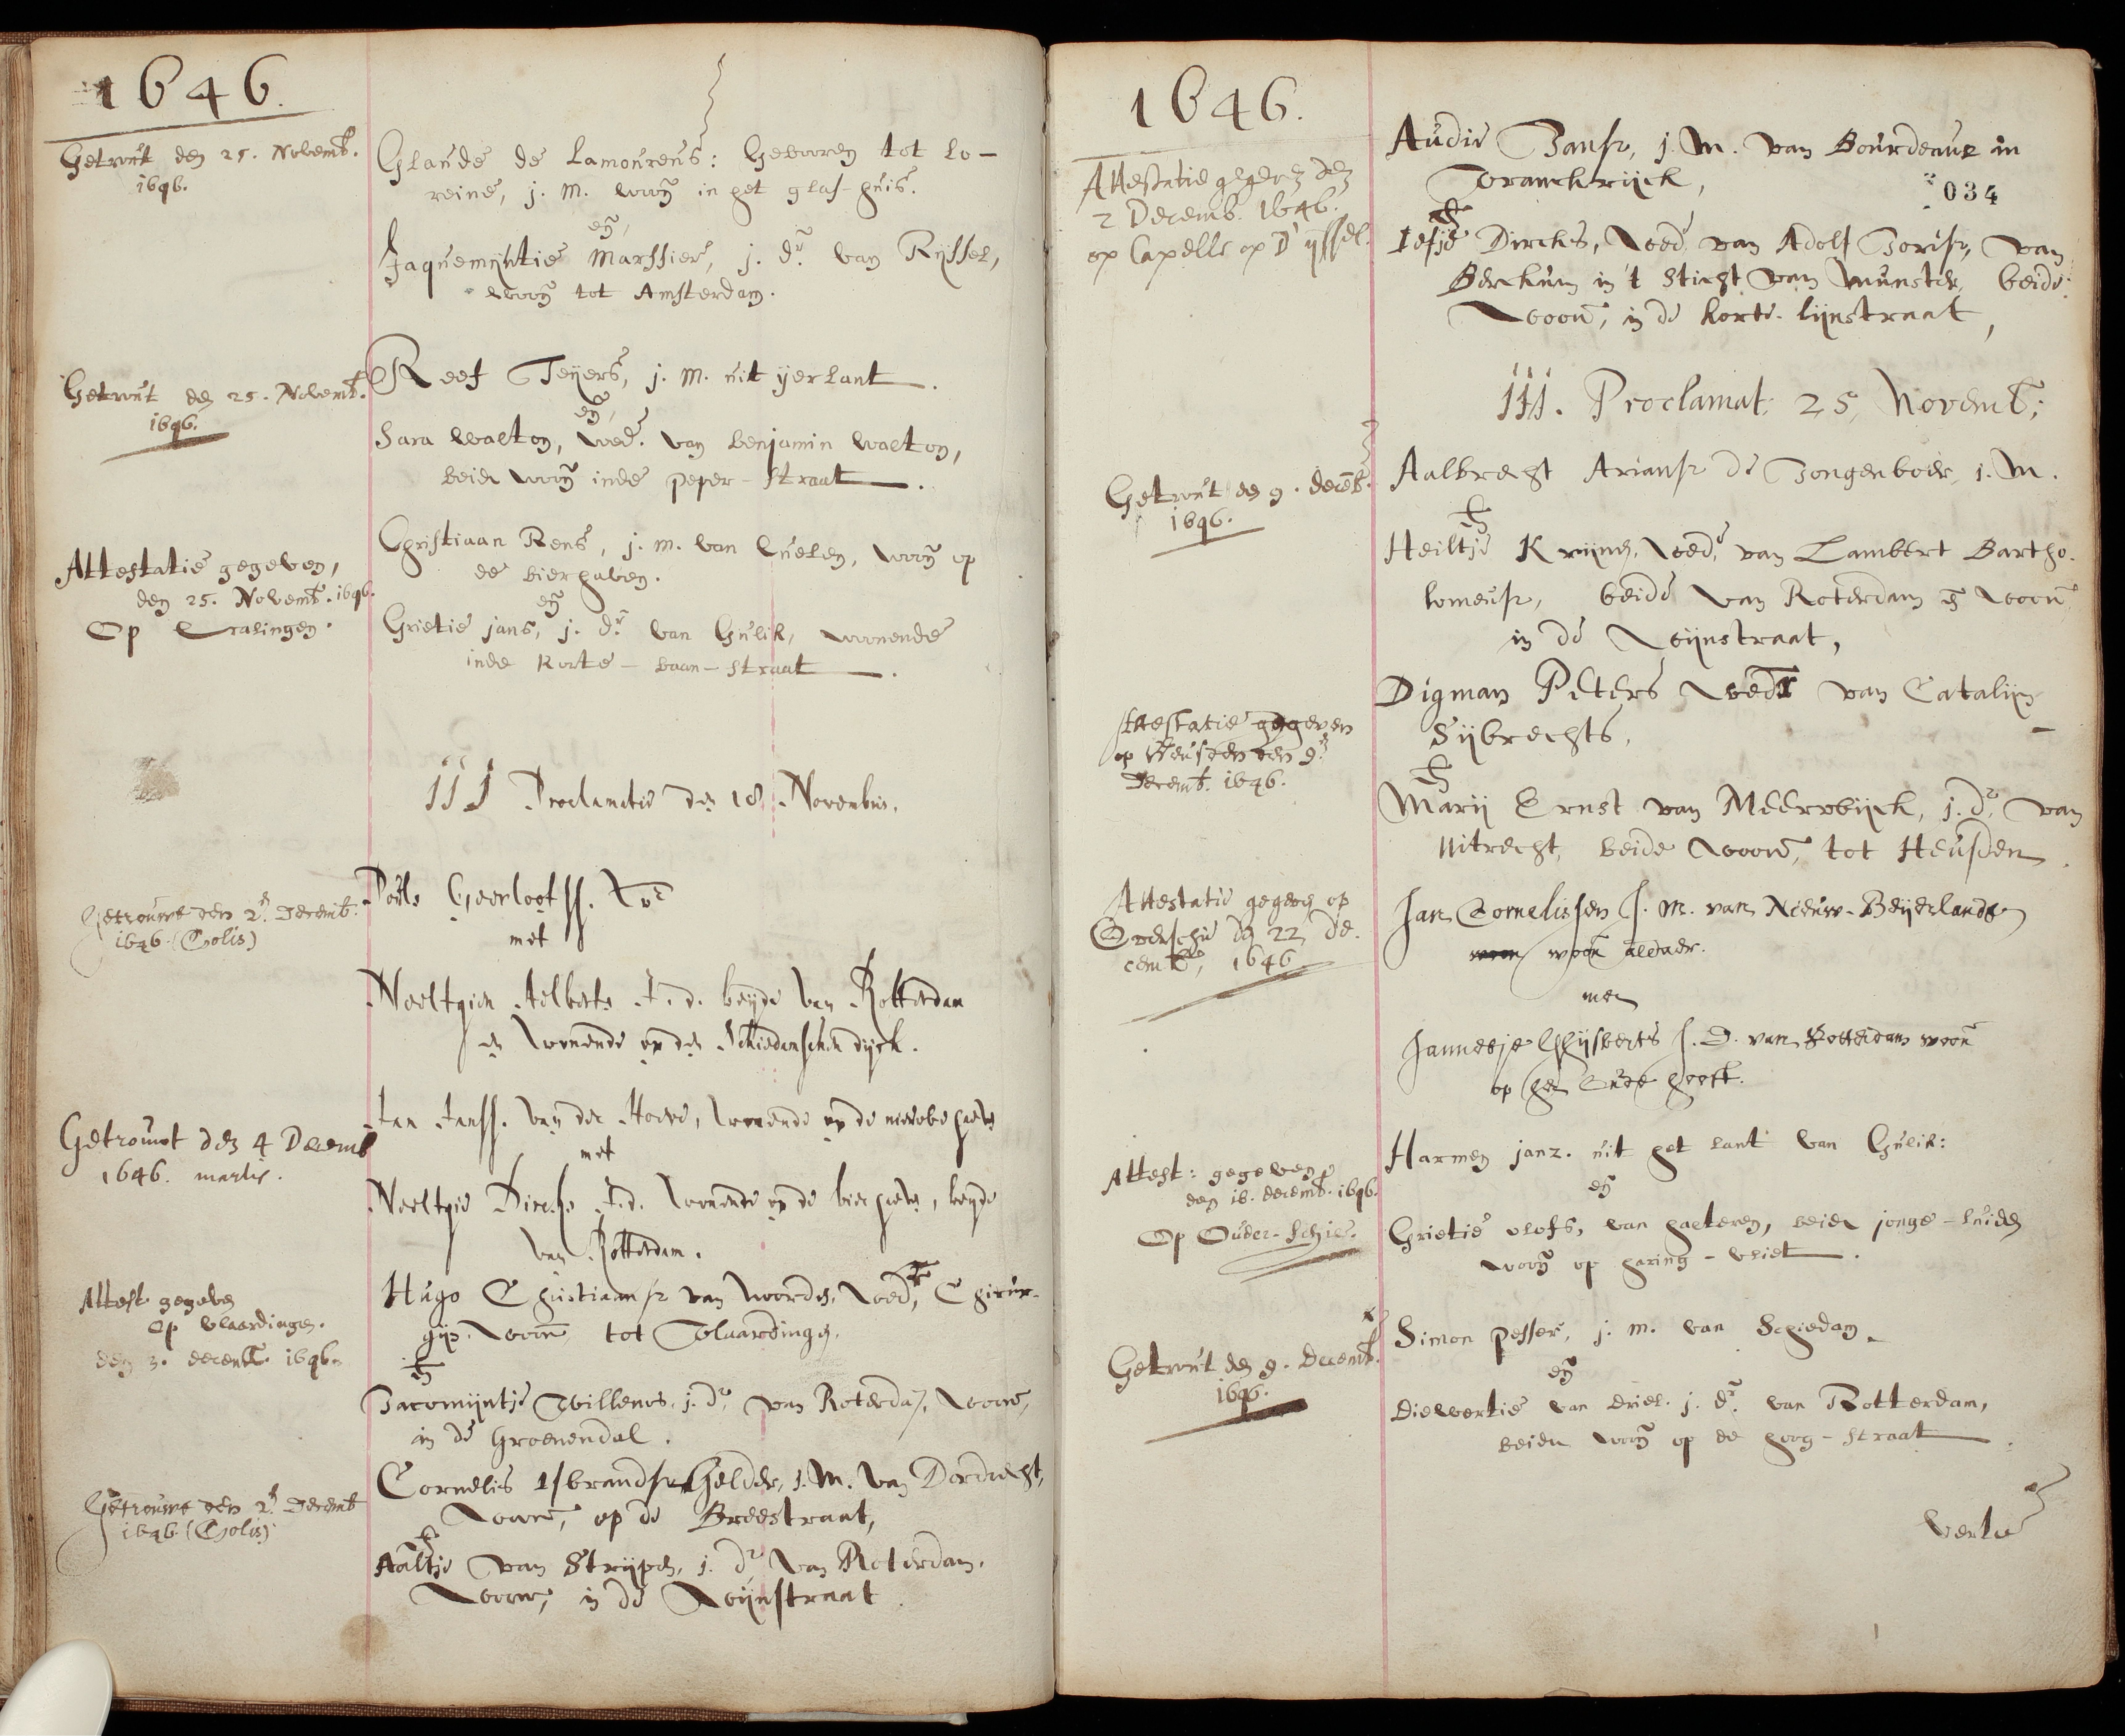 1646.
Getrout den 25. Novemb.
1646.
Glaude de Lamoureus: Gebooren tot Lo-
reine, j. m. woon in het glas-huis.
en
Jaquemijntie Marssier, j. dr. van Rijssel,
woon tot Amsterdam.
Getrout den 25. Novemb.
1646.
Reef Teijers, j. m. uit yerlant.
en
Sara Walton, wed. van Benjamin Walton,
beide woon inde peper-straat.
Attestatie gegeven,
den 25. Novemb. 1646.
Op Cralingen.
Christiaan Rens, j. m. van Ceulen, woon op
de bierhaven.
en
Grietie jans, j. dr. van Gulik, woonende
inde korte-baan-straat.
III Proclamatie den 18 Novembris.
Getrouwt den 2en Decemb.
1646 (Colis)
Geerlootss.
met
Neeltgien Aelberts J. d. beyde van Rotterdam
en wonende op den Schiedamschen dijck.
Getrouwt den 4 Decemb
1646. martis.
Jan Janss. van der Hoeve, wonende op de nieuwehaven
met
Neeltgie Dircks J. d. wonende op de bierhaven, beyde
van Rotterdam.
Attest. gegeven
Op Vlaerdingen.
den 3. decemb. 1646.
Hugo Christiaansz van Woorden, Wedr, Chirur-
gijn, woon, tot Vlaardingen,
en
Jacomijntje Willems, j. dr, van Roterdam, woon,
in de Groenendal.
Getrouwt den 2en Decemb
1646 (Colis)
Cornelis Isbrandsz Gelder, j. M. van Dordrecht,
woon, op de Breestraat,
en
Aaltje van Strijpen, j. dr van Roterdam,
woon, in de Wijnstraat.
1646.
Attestatie gegeven den
2 Decemb. 1646.
op Capelle op D' yssel.
Audie Jansz, j. M. van Bourdeaux in
Vranckrijck,
034
en
Iefje Dircks, Wed. van Adolf Jorisz, van
Berchum in 't Sticht van Munster, beide
woon, in de korte lijnstraat,
III. Proclamat. 25, Novemb;
Getrout den 9. decemb.
1646.
Aalbrecht Ariansz de Jongenboer, j. M.
en
Heiltje Krijnen, Wed, van Lambert Bartho-
lomeusz, beide van Roterdam en woon
in de Wijnstraat,
Attestatie gegeven
op Heusden den 9en
Decemb. 1646.
Digman Peters Wedr van Catalijn
Sijbrechts,
en
Marij Ernst van Meerwijck, j. dr, van
Uitrecht, beide woon, tot Heusden.
Attestatie gegeven op
Overschie den 22 De-
cemb, 1646
Jan Cornelissen J. M. van Nieuw-Beijerlandt
woon woon aldaer.
met
Jannetje Ghijsberts J. D. van Rotterdam woon
op het Oude hooft.
Attest: gegeven
den 16. decemb. 1646.
Op Ouder-Schie.
Harmen janz. uit het lant van Gulik:
en
Grietie olofs, van halteren, beide jonge-luiden
woon op haring-vliet.
Getrout den 9. Decemb.
1646.
Simon pesser, j. m. van Schiedam
en
Diewertie van Driel. j. dr. van Rotterdam,
beiden woon op de hoog-straat.
Verte